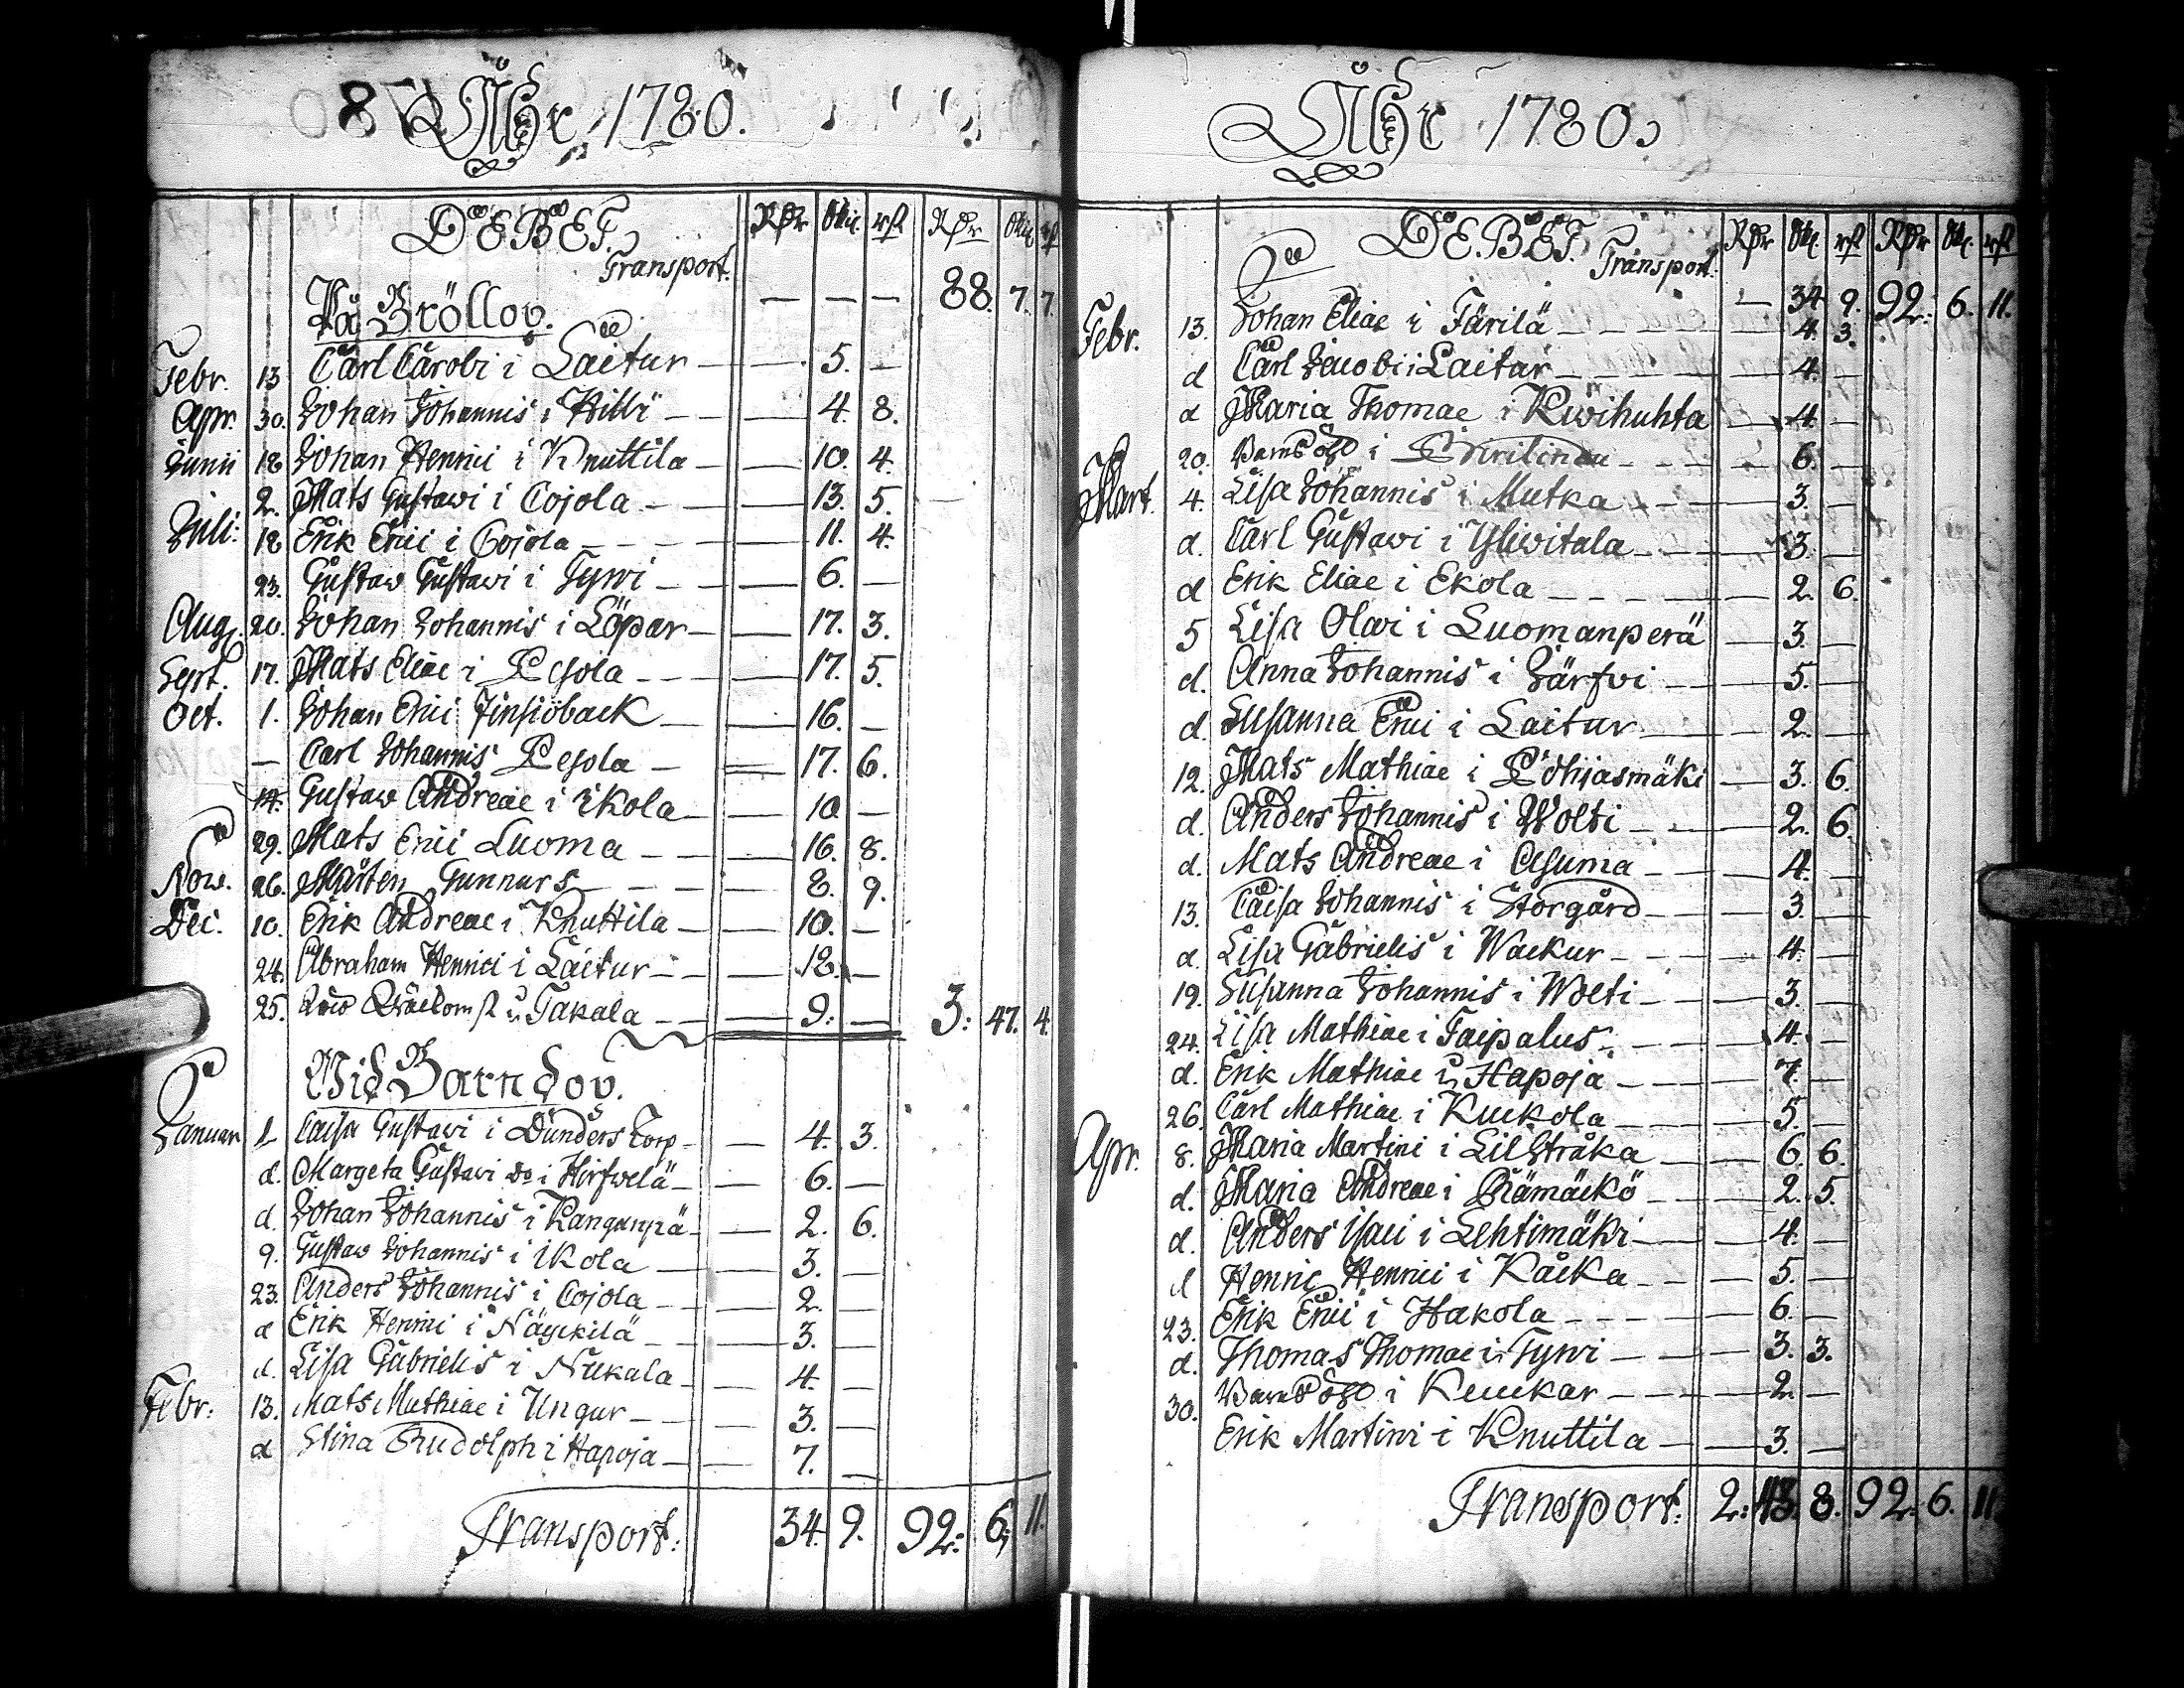 Åhr 1780.
DEBET. Rdr Skil. rst Rdr Skil rst
Transport. — — — 88. 7. 7.
På Bröllop.
Febr. 13 Carl Carobi i Laitur — 5. —
Apr. 30. Johan Johannis i Hilli — 4. 8.
Junii 18 Johan Henrici i Knuttila — 10. 4.
2. Mats Gustavi i Cojola — 13. 5.
Juli: 18 Erik Erici i Cojola — 11. 4.
23. Gustav Gustavi i Tyvi — 6. —
Aug. 20. Johan Johannis i Löpar — 17. 3.
Sept. 17. Mats Eliae i Pesola — 17. 5.
Oct. 1. Johan Erici Finsiöback — 16. —
— Carl Johannis Pesola — 17. 6.
14. Gustav Andreae i ikola — 10 —
29. Mats Erici Luoma — 16. 8.
Nov. 26. Mårten Gunnars — 8. 9.
Dec. 10. Erik Andreae i Knuttila — 10. —
24. Abraham Henrici i Laitur — 12. —
25. Takala — 9. — 3: 47. 4.
Vid Barndop.
Januar 1 Caisa Gustavi i Dunders Torp — 4. 3.
d. Margeta Gustavi do i Hirfvelä — 6. —
d. Johan Johannis i Kanganpä — 2. 6.
9. Gustav Johannis i iKola — 3. —
23. Anders Johannis i Cojola — 2. —
d Erik Henrici i Näyckilä — 3. —
d. Lisa Gabrielis i Nukala — 4. —
Febr: 13. Mats Mathiae i Ungur — 3. —
d Stina Rudolph i Hapoja — 7. —
Transport: 34. 9. 92: 6. 11.
Åhr 1780.
DEBET. Rdr Sk. rst Rdr Sk. rst
Transport. — 34 9. 92: 6. 11.
Febr. 13. Johan Eliae i Färilä — 4. 3.
d Carl Jacobi i Laitur — 4. —
d Maria Thomae i Kivihuhta — 4 —
20. Barns i — 6. —
Mart. 4. Lisa Johannis i Mutka — 3. —
d. Carl Gustavi i Ylivitala — 3. —
d Erik Eliae i Ekola — 2. 6.
5 Lisa Olavi i Luomanperä — 3. —
d. Anna Johannis i Järfvi — 5. —
d. Susanna Erici i Laitur — 2. —
12. Mats Mathiae i Pohjasmäki — 3. 6.
d. Anders Johannis i Wolti — 2. 6.
d. Mats Andreae i Asuma — 4. —
13. Caisa Johannis i Storgård — 3. —
d. Lisa Gabrielis i Wackur — 4. —
19. Susanna Johannis i Wolti — 3. —
24. Lisa Mathiae i Taipalus — 4. —
d. Erik Mathiae i Hapoja — 7. —
26. Carl Mathiae i Kuckola — 5. —
Apr. 8. Maria Martini i Lillstråka — 6. 6.
d. Maria Andreae i Rämäckö — 2. 5.
d. Anders Isaci i Lehtimäki — 4. —
d Henric Henrici i Kåcka — 5. —
23. Erik Erici i Hakola — 6. —
d. Thomas Thomae i Tyvi — 3. 3.
30. Barns i Keuckar — 2 —
Erik Martini i Knuttila — 3. —
Transport. 2: 43. 8. 92. 6. 11.